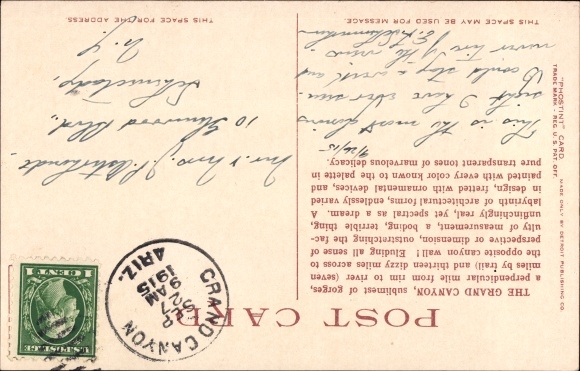 POST CARD
THE GRAND CANYON, sublimest of gorges,
a perpendicular mile from rim to river (seven
miles by trail) and thirteen dizzy miles across to
the opposite canyon wall! Eluding all sense of
perspective or dimension, outstretching the fac-
ulty of measurement, a boding, terrible thing,
unflinchingly real, yet spectral as a dream. A
labyrinth of architectural forms, endlessly varied
in design, fretted with ornamental devices, and
painted with every color known to the palette in
pure transparent tones of marvelous delicacy.
9/26/15
This is the most glorious
sight I have ever seen.
could stay a week and
never tire of the view.
THIS SPACE MAY BE USED FOR MESSAGE.
"PHOSTINT" CARD
TRADE MARK - REG. U.S. PAT. OFF.
MADE ONLY BY DETROIT PUBLISHING CO.
GRAND CANYON
SEP
27
9 AM
1915
ARIZ.
U.S. POSTAGE
1 CENT 1
Mr. & Mrs. J.
10 Glenwood Blvd.,
Schenectady,
N. Y.
THIS SPACE FOR THE ADDRESS.